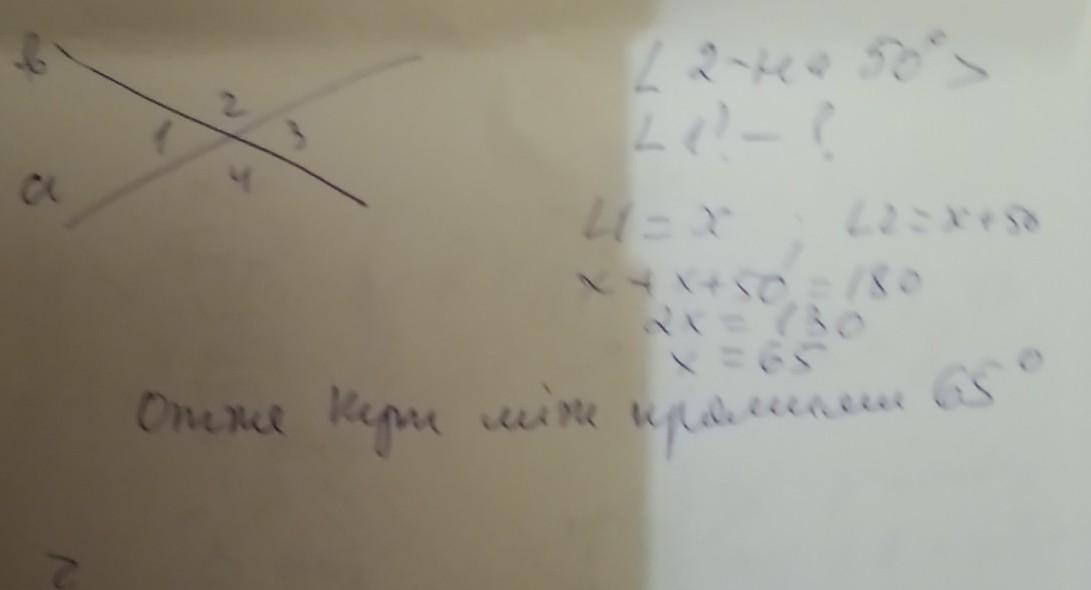 в
2
1
3
4
a
∠2 - на 50° >
∠1 - ?
∠1 = x ; ∠2 = x + 50
x + x + 50 = 180
2x = 130
x = 65
Отже кут між прямими 65°